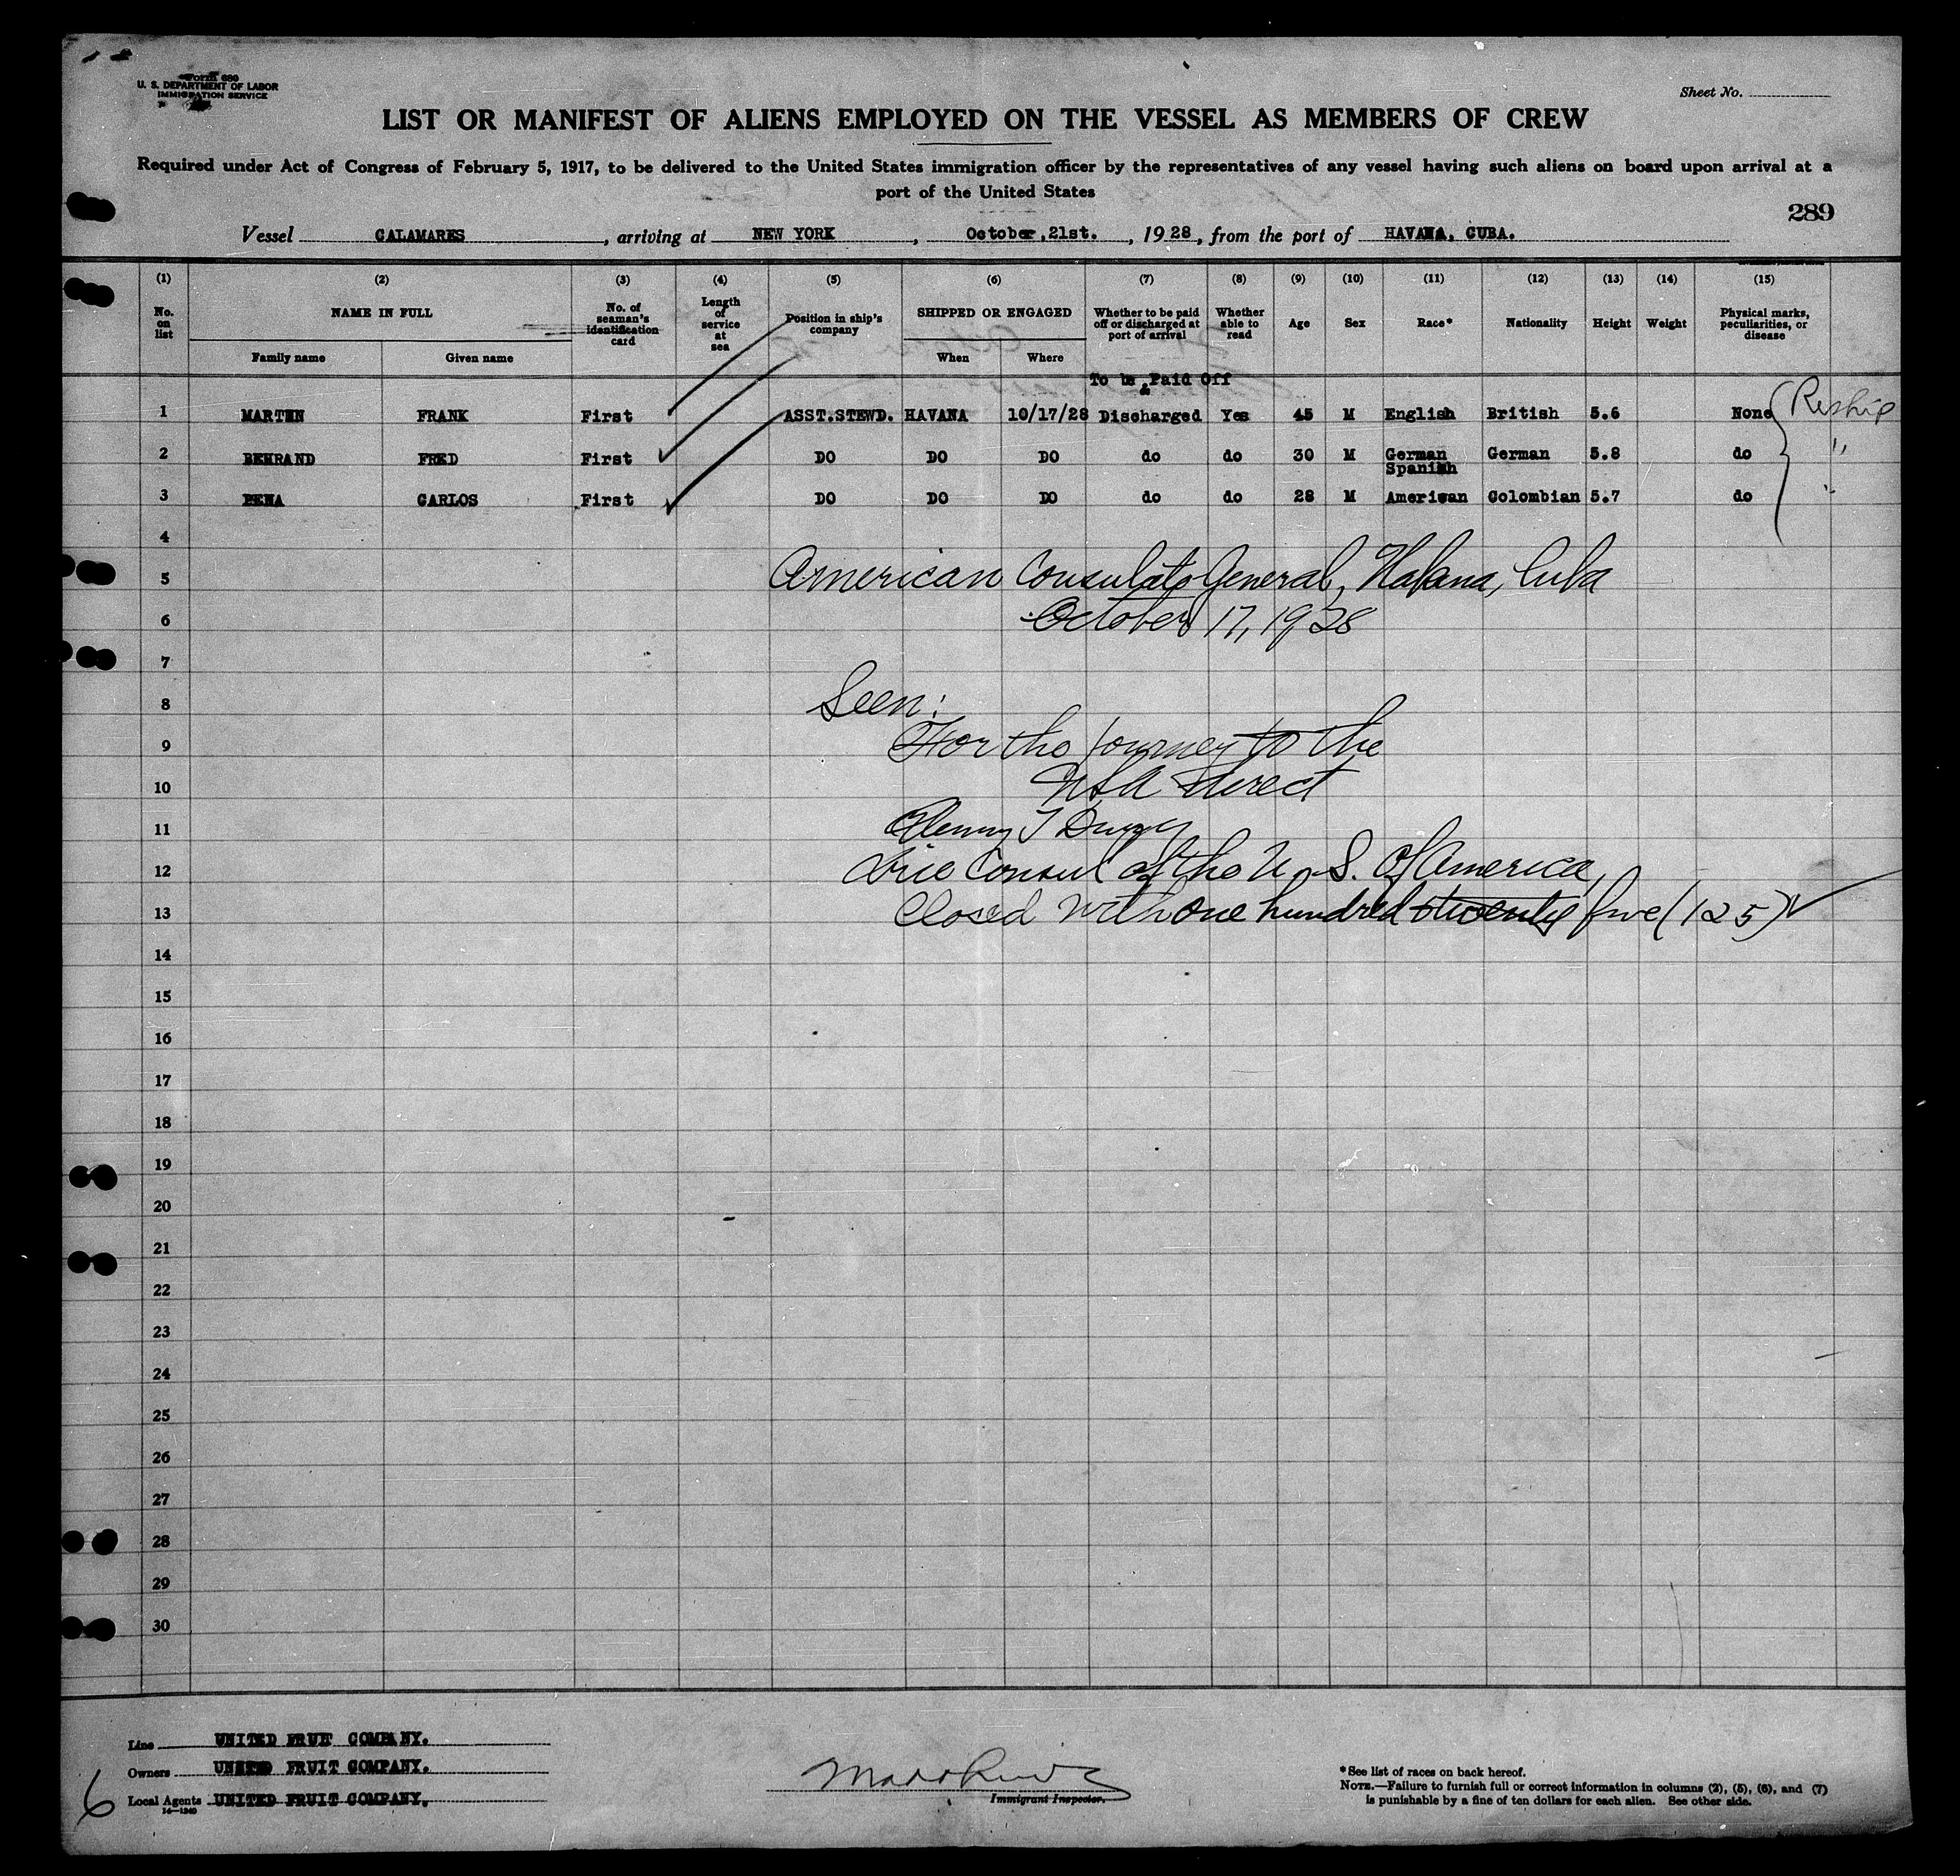 Form 689
U. S. DEPARTMENT OF LABOR
IMMIGRATION SERVICE
Sheet No.
LIST OR MANIFEST OF ALIENS EMPLOYED ON THE VESSEL AS MEMBERS OF CREW
Required under Act of Congress of February 5, 1917, to be delivered to the United States immigration officer by the representatives of any vessel having such aliens on board upon arrival at a
port of the United States
289
Vessel CALAMARES, arriving at NEW YORK, October,21st., 1928, from the port of HAVANA, CUBA.
(1) (2) (3) (4) (5) (6) (7) (8) (9) (10) (11) (12) (13) (14) (15)
No. on list NAME IN FULL Family name Given name No. of seaman's identification card Length of service at sea Position in ship's company SHIPPED OR ENGAGED When Where Whether to be paid off or discharged at port of arrival Whether able to read Age Sex Race* Nationality Height Weight Physical marks, peculiarities, or disease
To be Paid Off
&
1 MARTIN FRANK First ASST.STEWD. HAVANA 10/17/28 Discharged Yes 45 M English British 5.6 None Reship
2 BEHRAND FRED First DO DO DO do do 30 M German German 5.8 do "
Spanish
3 PENA CARLOS First DO DO DO do do 28 M American Colombian 5.7 do "
4
American Consulate General, Habana, Cuba
5
October 17, 1928
6
7
Seen:
8
For the journey to the
9
USA direct
10
Henry T
11
Vice Consul of the U. S. Of America,
12
Closed with one hundred twenty five (125)
13
14
15
16
17
18
19
20
21
22
23
24
25
26
27
28
29
30
Line UNITED FRUIT COMPANY.
Owners UNITED FRUIT COMPANY.
Local Agents UNITED FRUIT COMPANY.
14—1240
6
Immigrant Inspector.
*See list of races on back hereof.
NOTE.—Failure to furnish full or correct information in columns (2), (5), (6), and (7)
is punishable by a fine of ten dollars for each alien. See other side.